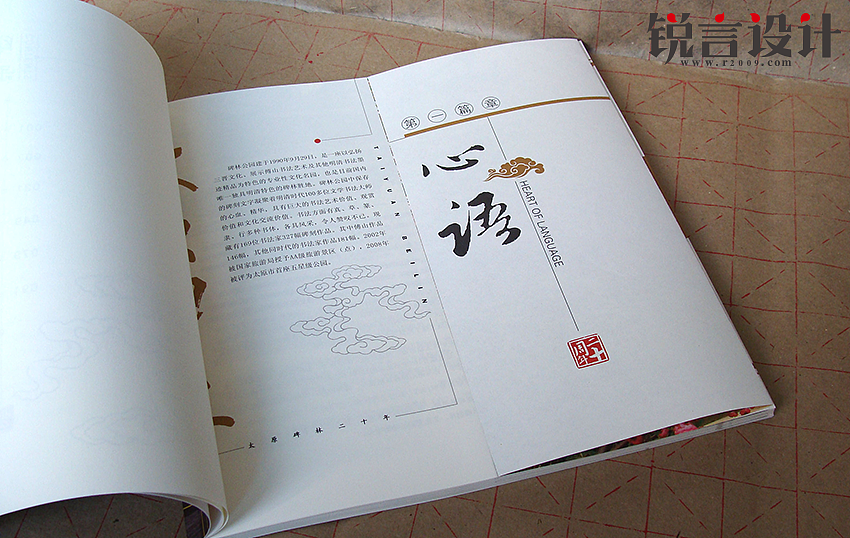 锐言设计
www.r2009.com
第一篇章
心语
HEART OF LANGUAGE
碑林公园建于1990年9月29日，是一座以弘扬
三晋文化、展示傅山书法艺术及其他明清书法墨
迹精品为特色的专业性文化名园，也是目前国内
唯一独具明清特色的碑林胜地。碑林公园中保存
的碑刻文字凝聚着明清时代100多位文学书法大师
的心血、精华，具有巨大的书法艺术价值、观赏
价值和文化交流价值。书法方面有真、草、篆、
隶、行多种书体，各具风采，令人赞叹不已。现
藏有169位书法家327幅碑刻作品，其中傅山作品
146幅，其他同时代的书法家作品181幅。2002年
被国家旅游局授予AA级旅游景区（点），2008年
被评为太原市首座五星级公园。
TAIYUAN BEILIN
太原碑林二十年